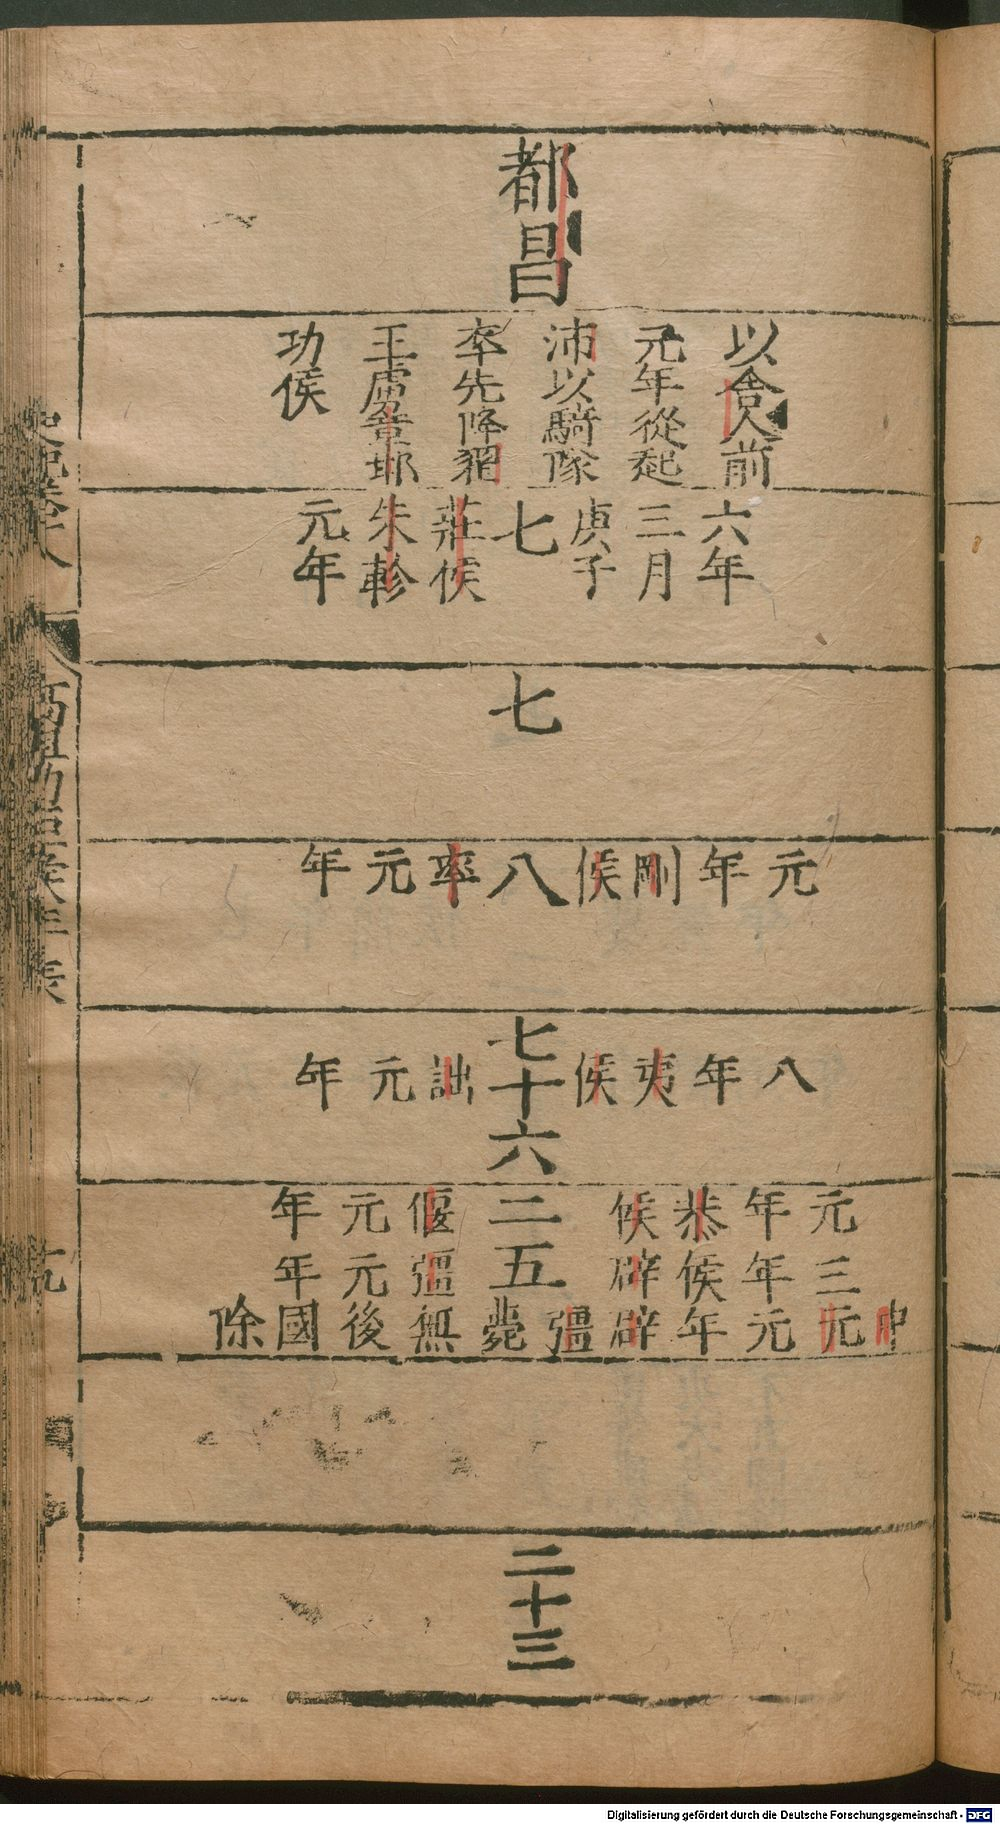 都昌
以舍人前
元年從起
沛以騎隊
率先降翟
王虜章邯
功侯
六年
三月
庚子
七
莊侯
朱軫
元年
七
元年剛侯
八
率元年
八年夷侯
七十六
詘元年
元年恭侯
二
偃元年
三年侯辟
五
彊元年
中元元年辟彊薨無後國除
二十三
Digitalisierung gefördert durch die Deutsche Forschungsgemeinschaft - DFG